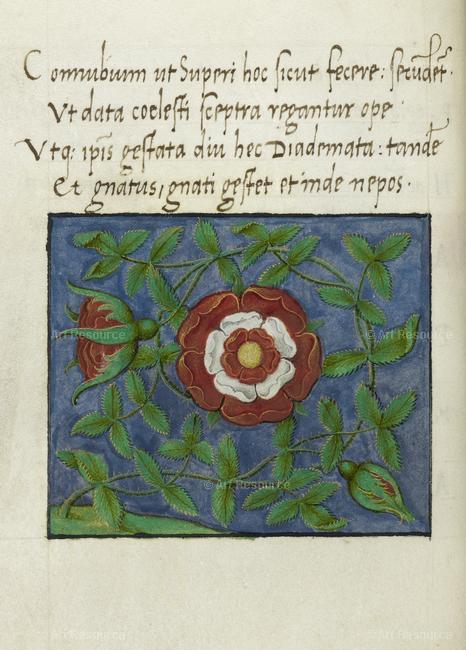 Connubium ut Superi hoc sicut fecere: secūdēt.
Ut data coelesti sceptra regantur ope
Utq: ipīs gestata diu hec Diademata: tandē
Et gnatus, gnati gestet et inde nepos.
© Art Resource
© Art Resource
© Art Resource
© Art Resource
© Art Resource